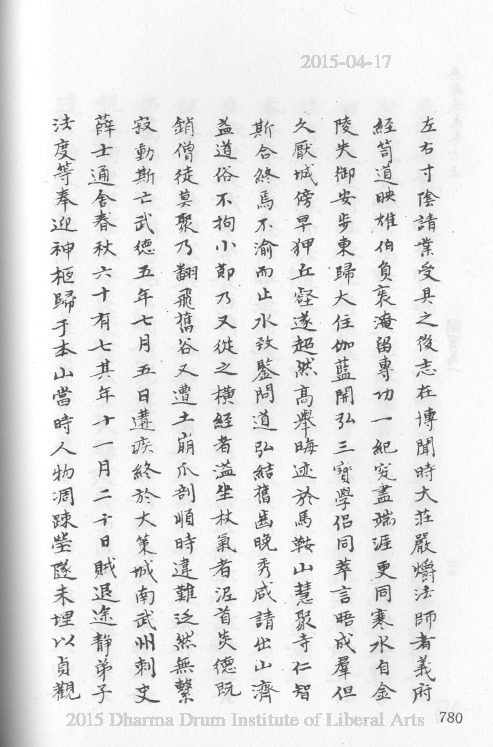 2015-04-17
左右寸陰請業受具之後志在博聞時大莊嚴爝法師者義府
經笥道映雄伯負袠淹留專功一紀究盡端涯更同寒水自金
陵失御安步東歸大住伽藍開弘三寶學侶同萃言晤成羣但
久厭城傍早狎丘壑遂超然高舉晦迹於馬鞍山慧聚寺仁智
斯合終焉不渝而止水致鑒問道弘結舊齒晚秀咸請出山濟
益道俗不拘小節乃又從之橫經者溢坐杖氣者泥首炎德既
銷僧徒莫聚乃翻飛舊谷又遭土崩瓜剖順時違難泛然無繫
寂動斯亡武德五年七月五日遘疾終於大策城南武州刺史
薛士通舍春秋六十有七其年十一月二十日賊退途静弟子
法度等奉迎神柩歸于本山當時人物凋踈塋隧未埋以貞觀
780
2015 Dharma Drum Institute of Liberal Arts